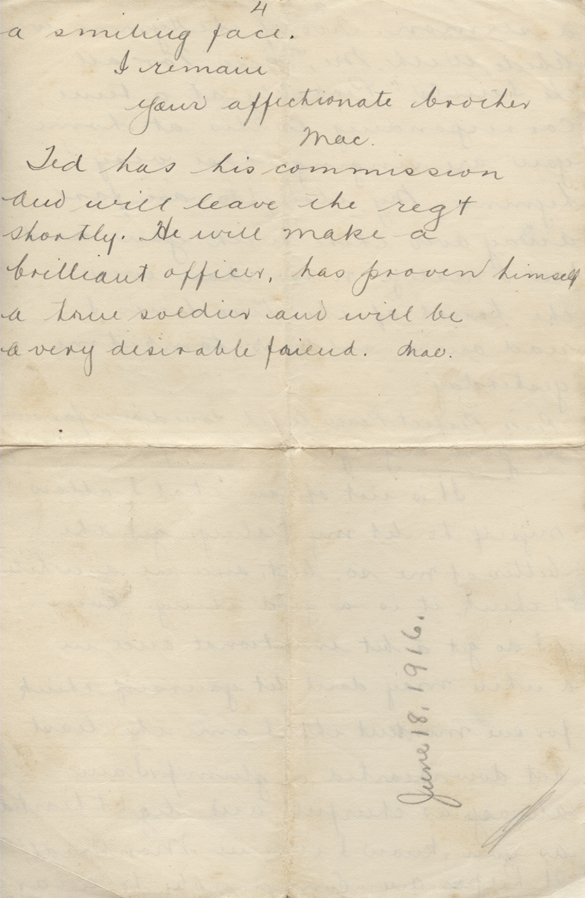 4
a smiling face.
I remain
your affectionate brother
Mac.
Ted has his commission
and will leave the regt
shortly. He will make a
brilliant officer, has proven himself
a true soldier and will be
a very desirable friend. Mac.
June 18, 1916.